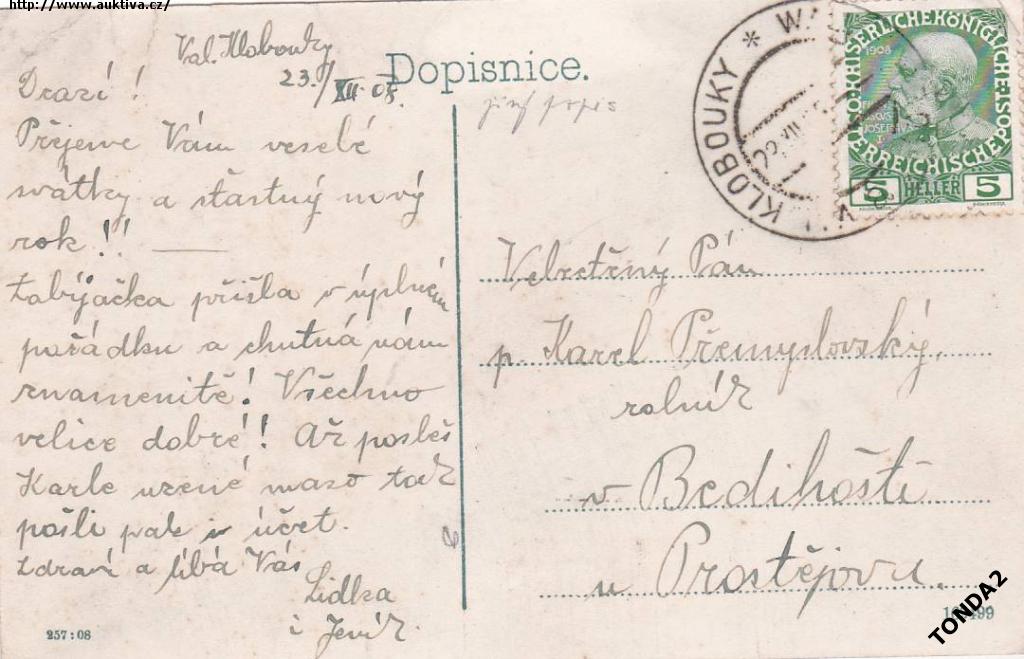 http://www.auktiva.cz/
Val. Klobouky
23./XII. 08.
Dopisnice.
Drazí!
Přejeme Vám veselé
svátky a šťastný nový
rok!!
Zabíjačka přišla v úplném
pořádku a chutná nám
znamenitě! Všechno
velice dobré! Až pošleš
Karle uzené maso tak
pošli pak i účet.
Zdraví a líbá Vás
Lidka
i Jeník.
257:08
KLOBOUKY * WA
KAISERLICHE KÖNIGLICHE
ÖSTERREICHISCHE POST
1908
5 HELLER 5
Velectěný Pán
p. Karel Přemyslovský,
rolník
v Bedihošti
u Prostějova.
TONDA2